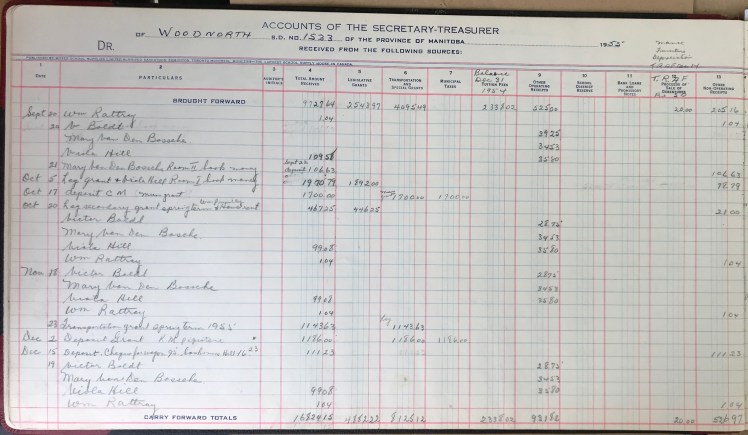 ACCOUNTS OF THE SECRETARY-TREASURER
OF WOODNORTH S.D. NO. 1523 OF THE PROVINCE OF MANITOBA 1955
DR. RECEIVED FROM THE FOLLOWING SOURCES:
1 2 3 4 5 6 7 8 9 10 11 12 13
DATE PARTICULARS TOTAL AMOUNT RECEIVED LEGISLATIVE GRANTS TRANSPORTATION AND SPECIAL GRANTS MUNICIPAL TAXES Balance Dec 31 1954 TUITION FEES OTHER OPERATING RECEIPTS SCHOOL DISTRICT RESERVE BANK LOANS AND PROMISSORY NOTES T.R.A.F PROCEEDS OF SALE OF DEBENTURES OTHER NON-OPERATING RECEIPTS
BROUGHT FORWARD 9729.64 2543.97 4095.49 2338.02 525.00 20.00 205.16
Sept 20 Wm Rattray 1.04 1.04
20 V Boldt 39.25
Mary Van Den Bossche 34.53
Viola Hill 109.58 35.80
21 Mary Van Den Bossche Room II book money 106.63 106.63
Oct 5 Leg grant & Viola Hill Room I book money 1970.79 1892.00 78.79
Oct 17 deposit C.M. mun grant 1700.00 1700.00 1700.00
Oct 20 Leg secondary grant spring term & 467.25 446.25 21.00
Victor Boldt 28.75
Mary Van Den Bossche 34.53
Viola Hill 99.08 35.80
Wm Rattray 1.04 1.04
Nov 18 Victor Boldt 28.75
Mary Van Den Bossche 34.53
Viola Hill 99.08 35.80
Wm Rattray 1.04 1.04
23 Transportation grant spring term 1955 1143.63 1143.63
Dec 2 Deposit Grant R.M. 1186.00 1186.00 1186.00
Dec 15 Deposit 111.23 111.23
19 Victor Boldt 28.75
Mary Van Den Bossche 34.53
Viola Hill 99.08 35.80
Wm Rattray 1.04 1.04
CARRY FORWARD TOTALS 4882.22 8125.12 2338.02 931.82 20.00